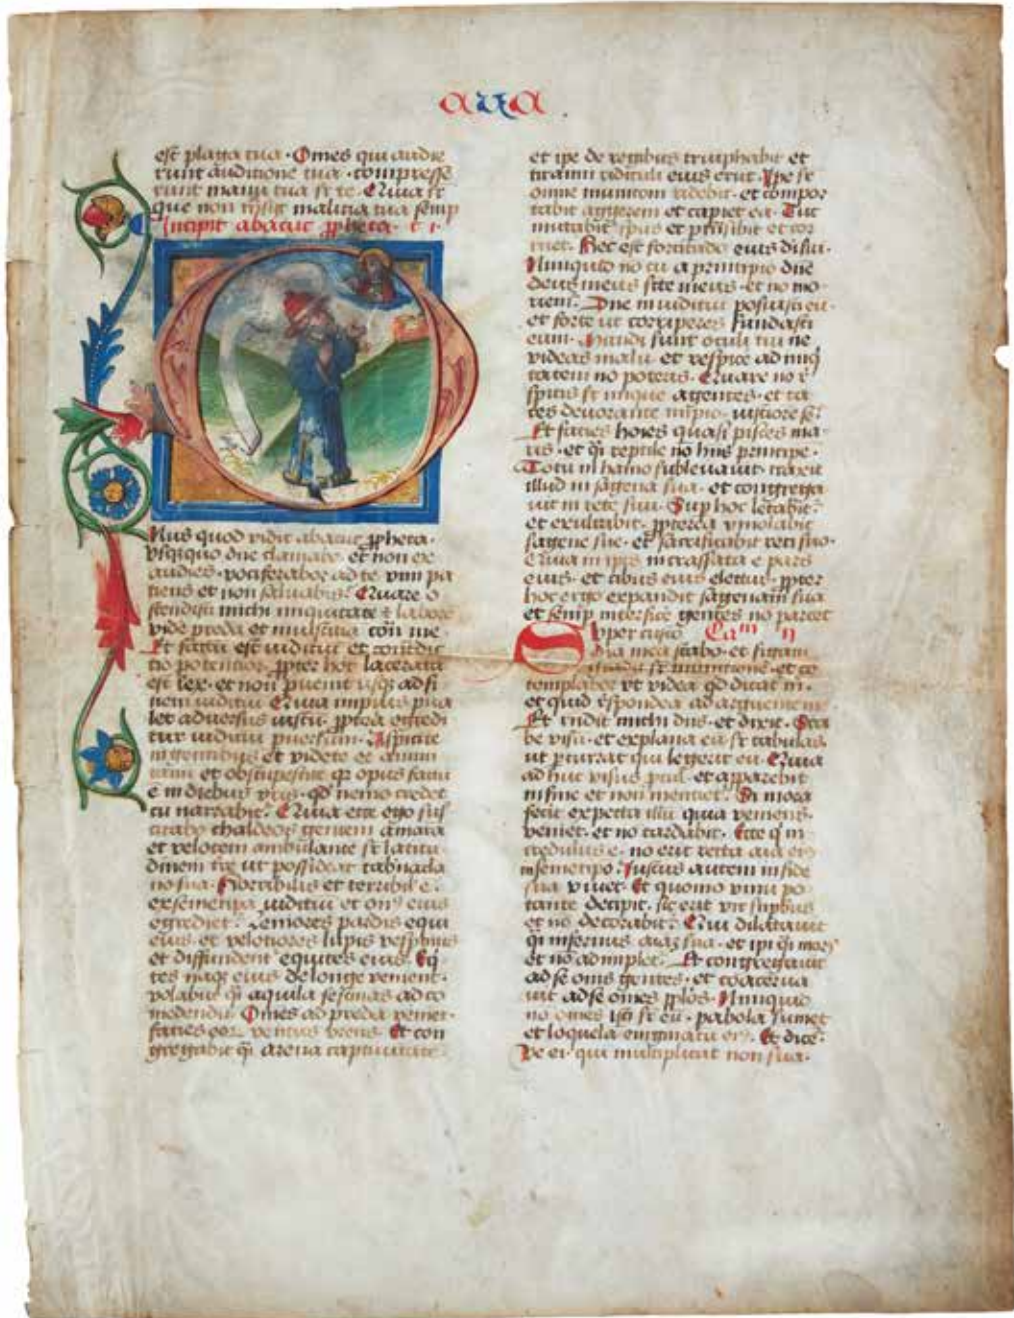 aua
est plaga tua · Omes qui audie
runt auditione tua · compresse
runt manu tua sr te · Quia sr
que non tnsijt malitia tua semp
Incipit abacuc ppheta · c i ·
Onus quod vidit abacuc ppheta ·
vsqquo dne clamabo · et non ex
audies · vociferabor ad te vim pa
tiens et non saluabis · Quare o
stendisti michi iniquitate et labore
vide preda et iniusticia cont me
Et factu est iudiciu et contdic
tio potencior · ppter hoc lacerata
est lex · et non puenit vsq ad fi
nem iudiciu Quia impius pua
let aduersus iustu · pptea egredi
tur iudiciu puersum · Aspicite
in gentibus et videte et ammi
rami et obstupescite q opus factu
e in diebus vris · qd nemo credet
cu narrabit · Quia ecce ego sus
citabo chaldeos gentem amara
et velocem ambulante sr latitu
dinem tre ut possideat tabnacla
no sua · Horribilis et terribil e ·
ex semetipo iudiciu et on eius
egrediet · Leuiores pardis equi
eius et velociores lupis vesptinis
et diffundent equites eius · Eq
tes naq eius de longe venient ·
volabut q aquila festinas ad co
medendu Omes ad preda venient
facies eor ventus vrens · Et con
gregabit q arena captiuitate ·
et ipe de regibus triuphabit et
tiranni ridiculi eius erut · Ipe sr
omne munitom ridebit · et compor
tabit aggerem et capiet ea · Tuc
mutabit spus et ptnsibit et cor
ruet · Hec est fortitudo eius di sui ·
Nunquid no tu a principio dne
deus meus scte meus · et no mo
riem · Dne in iudiciu posuisti eu ·
et forte ut corriperes fundasti
eum · Mundi sunt oculi tui ne
videas malu · et respice ad iniq
tatem no poteris · Quare no re
spicis sr inique agentes · et ta
ces deuorante impio · iustiore se
Et facies hoies quasi pisces ma
ris · et q reptile no hns principe ·
Totu in hamo subleuauit · traxit
illud in sagena sua · et congrega
uit in rete suu · Sup hoc letabit
et exultabit · pptera ymolabit
sagene sue · et sacrificabit reti suo ·
Quia in ipis incrassata e pars
eius · et cibus eius electus · ppter
hoc ergo expandit sagenam sua
et semp interfice gentes no parcet
Super custo Cam II
dia mea stabo · et figam
gradu sr munitione · et co
templabor vt videa qd dicat m
et quid respondea ad arguente me
Et rndit michi dns · et dixit · Scri
be visu · et explana eu sr tabulas
ut pcurrat qui legerit eu · Quia
ad huc visus pcul · et apparebit
in fine et non mentiet · Si mora
fecit expecta illu quia veniens
veniet · et no tardabit · Ecce q in
credulus e · no erit recta aia ei
in semetipo · Iustus autem in fide
sua viuet · Et quomo vinu po
tante decipit · sic erit vir supbus
et no decorabit · Qui dilatauit
q infernus aiaz sua · et ipi q mors
et no adimplet · Et congregauit
ad se omis gentes · et coacerua
uit ad se omes pplos · Nunquid
no omes isti sr eu · pabola sument
et loquela enigmatu ei · Et dicet
Ve ei · qui multiplicat non sua ·